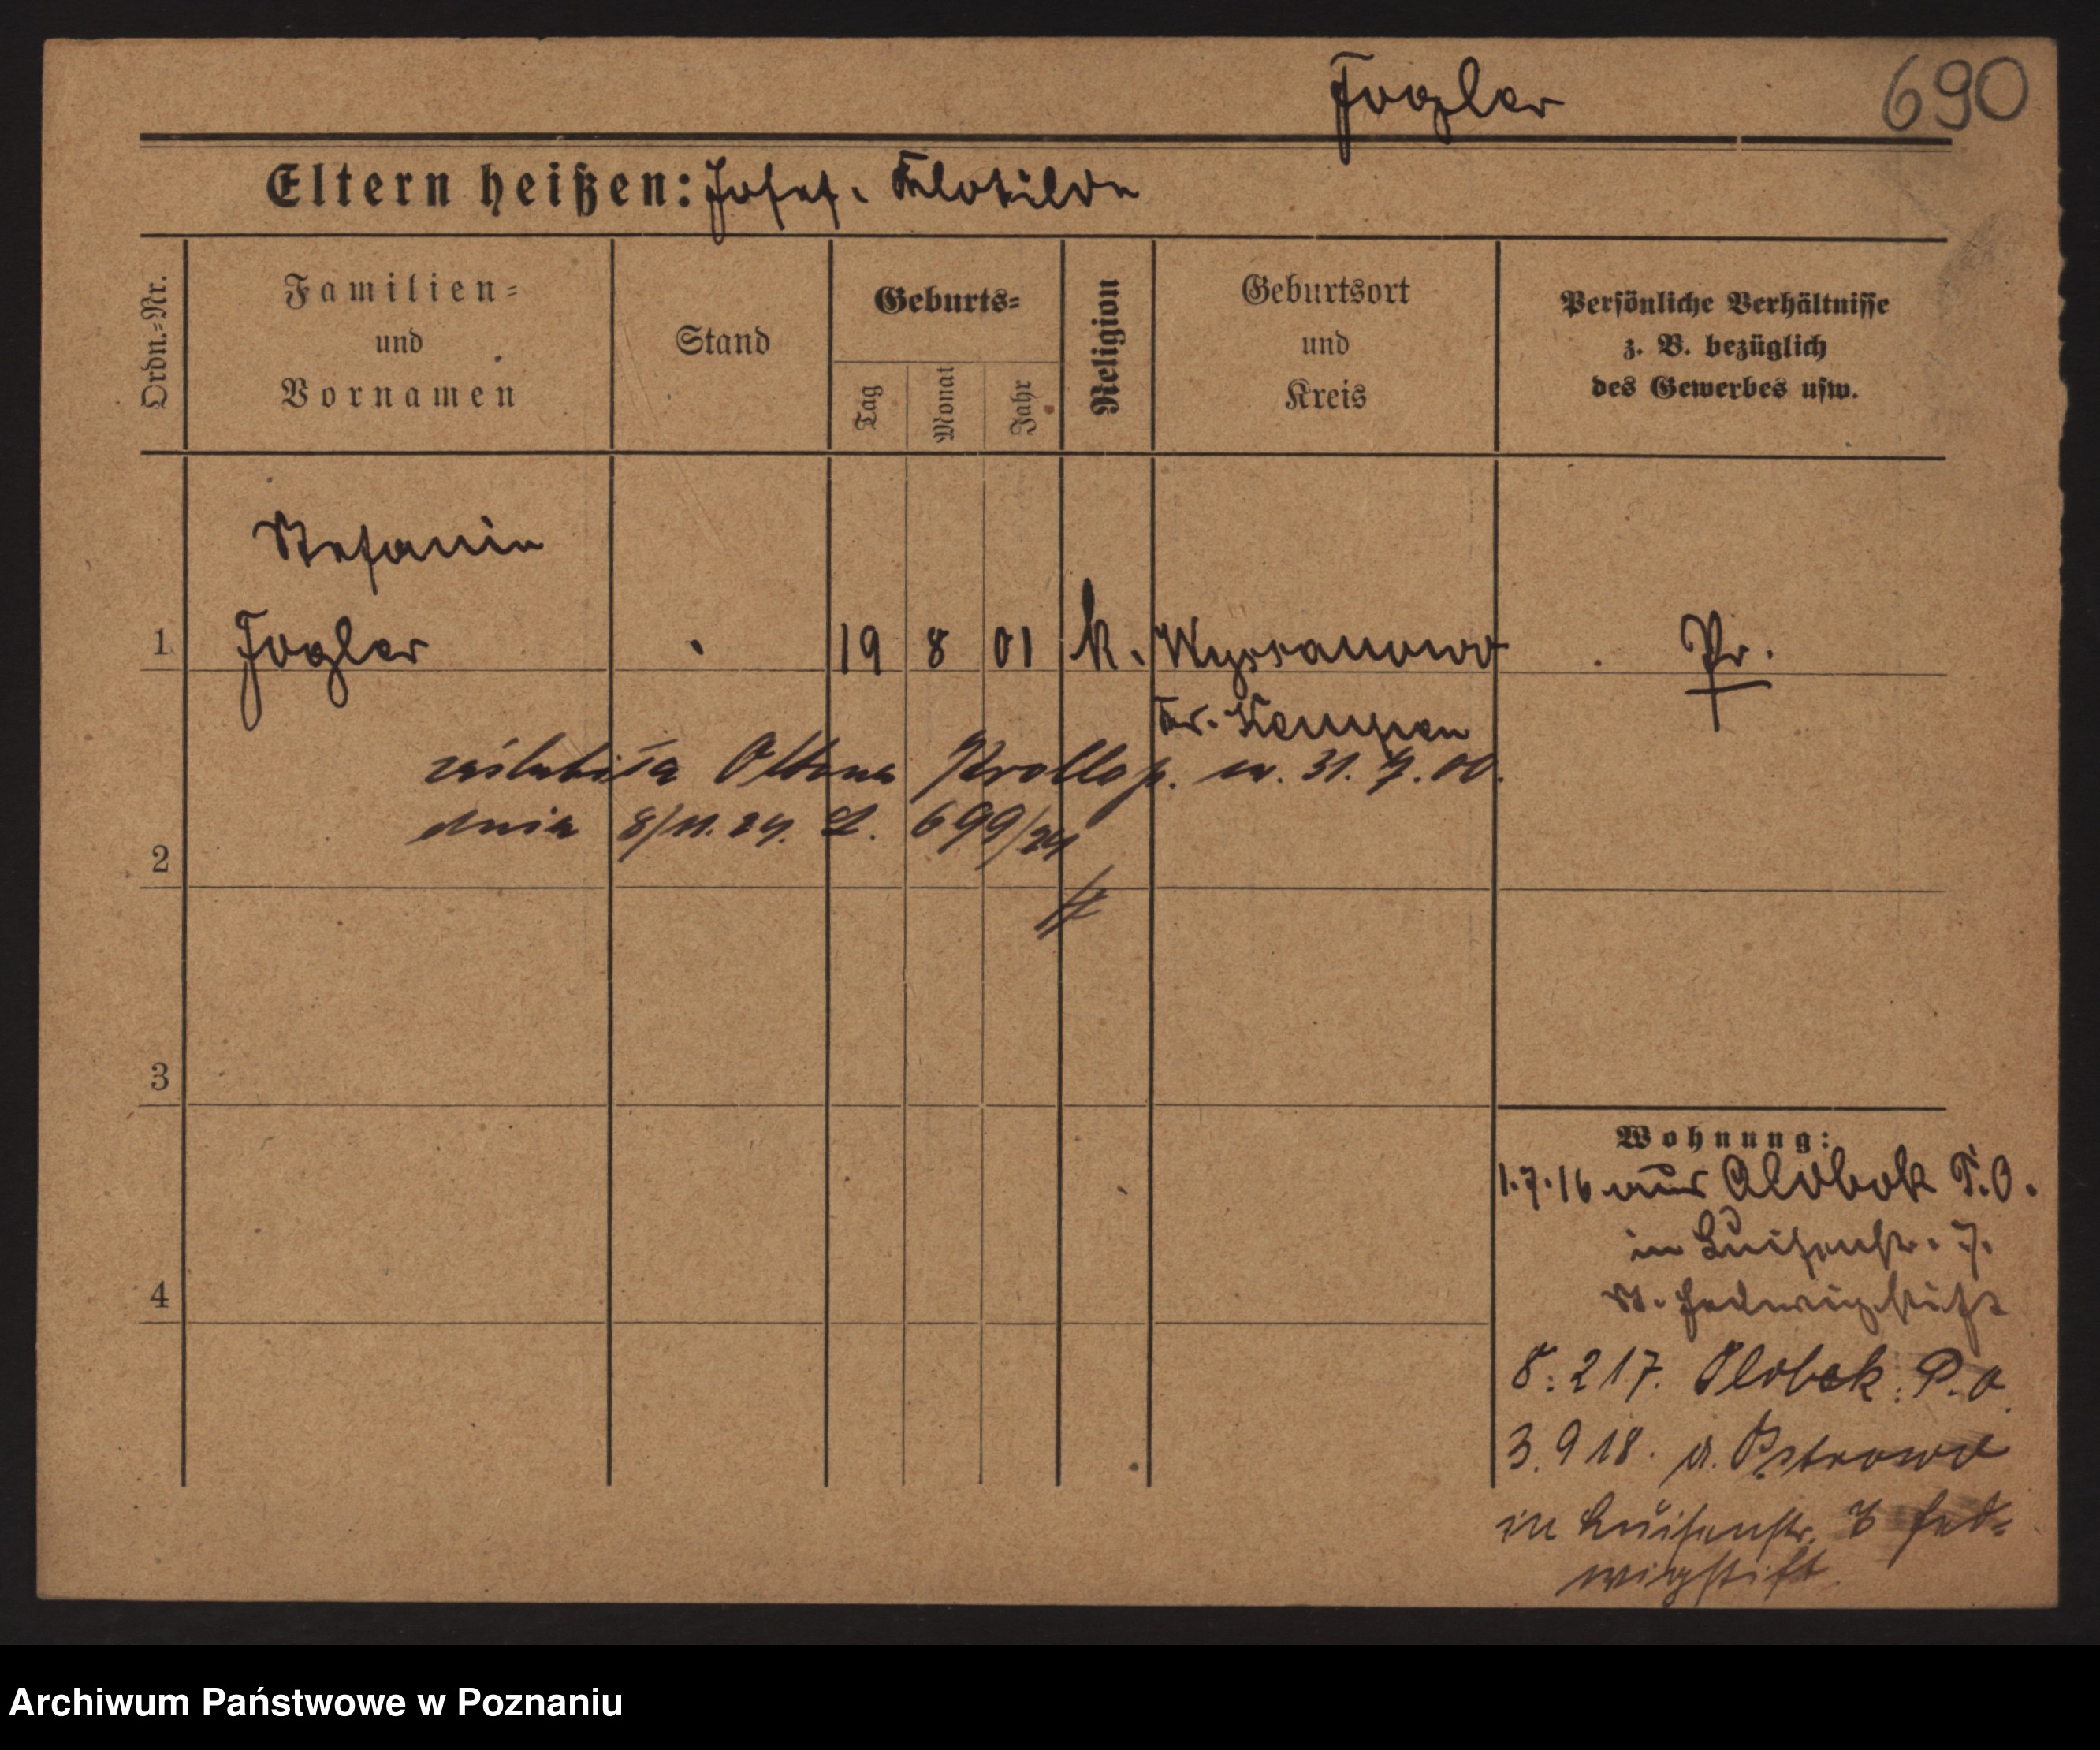 Fogler
690
Eltern heißen: Josef. Klotilde
Ordn.=Nr.
Familien=
und
Vornamen
Stand
Geburts=
Tag
Monat
Jahr
Religion
Geburtsort
und
Kreis
Persönliche Verhältnisse
z. B. bezüglich
des Gewerbes usw.
Stefanie
1 Fogler 19 8 01 k. Wyssanowo Pr.
Kr. Kempen
zaślubiła Ottona Krolla p. u. 31. 7. 00.
dnia 8/11. 24. L. 699/24
2
3
4
Wohnung:
1.7.16 aus Olobok P.O.
in Luisenstr. 7.
St. Hedwigstift
8. 2 17. Olobok. P. O
3. 9 18. a. Ostrowo
in Luisenstr. 7 Hed=
wigstift
Archiwum Państwowe w Poznaniu